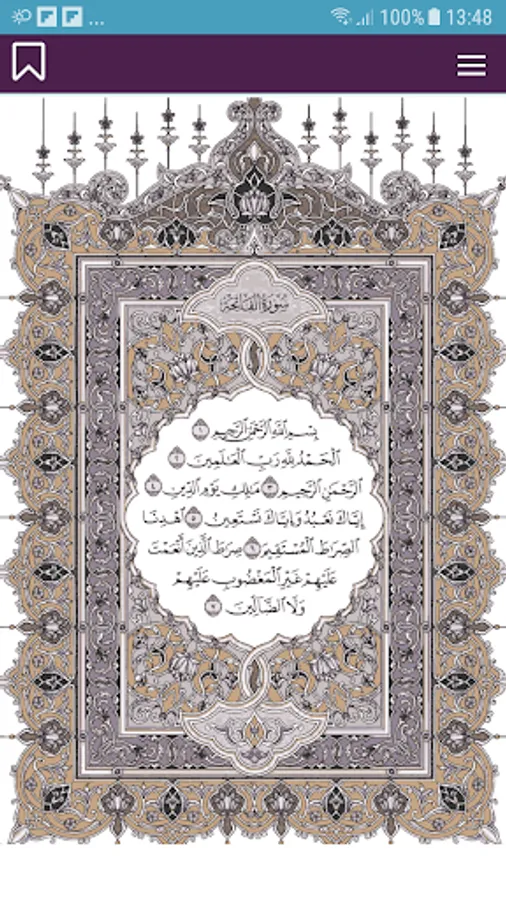 ... 100% 13:48
سورة الفاتحة
بِسْمِ ٱللَّهِ ٱلرَّحْمَٰنِ ٱلرَّحِيمِ ١
ٱلْحَمْدُ لِلَّهِ رَبِّ ٱلْعَٰلَمِينَ ٢
ٱلرَّحْمَٰنِ ٱلرَّحِيمِ ٣ مَٰلِكِ يَوْمِ ٱلدِّينِ ٤
إِيَّاكَ نَعْبُدُ وَإِيَّاكَ نَسْتَعِينُ ٥ ٱهْدِنَا
ٱلصِّرَٰطَ ٱلْمُسْتَقِيمَ ٦ صِرَٰطَ ٱلَّذِينَ أَنْعَمْتَ
عَلَيْهِمْ غَيْرِ ٱلْمَغْضُوبِ عَلَيْهِمْ
وَلَا ٱلضَّآلِّينَ ٧